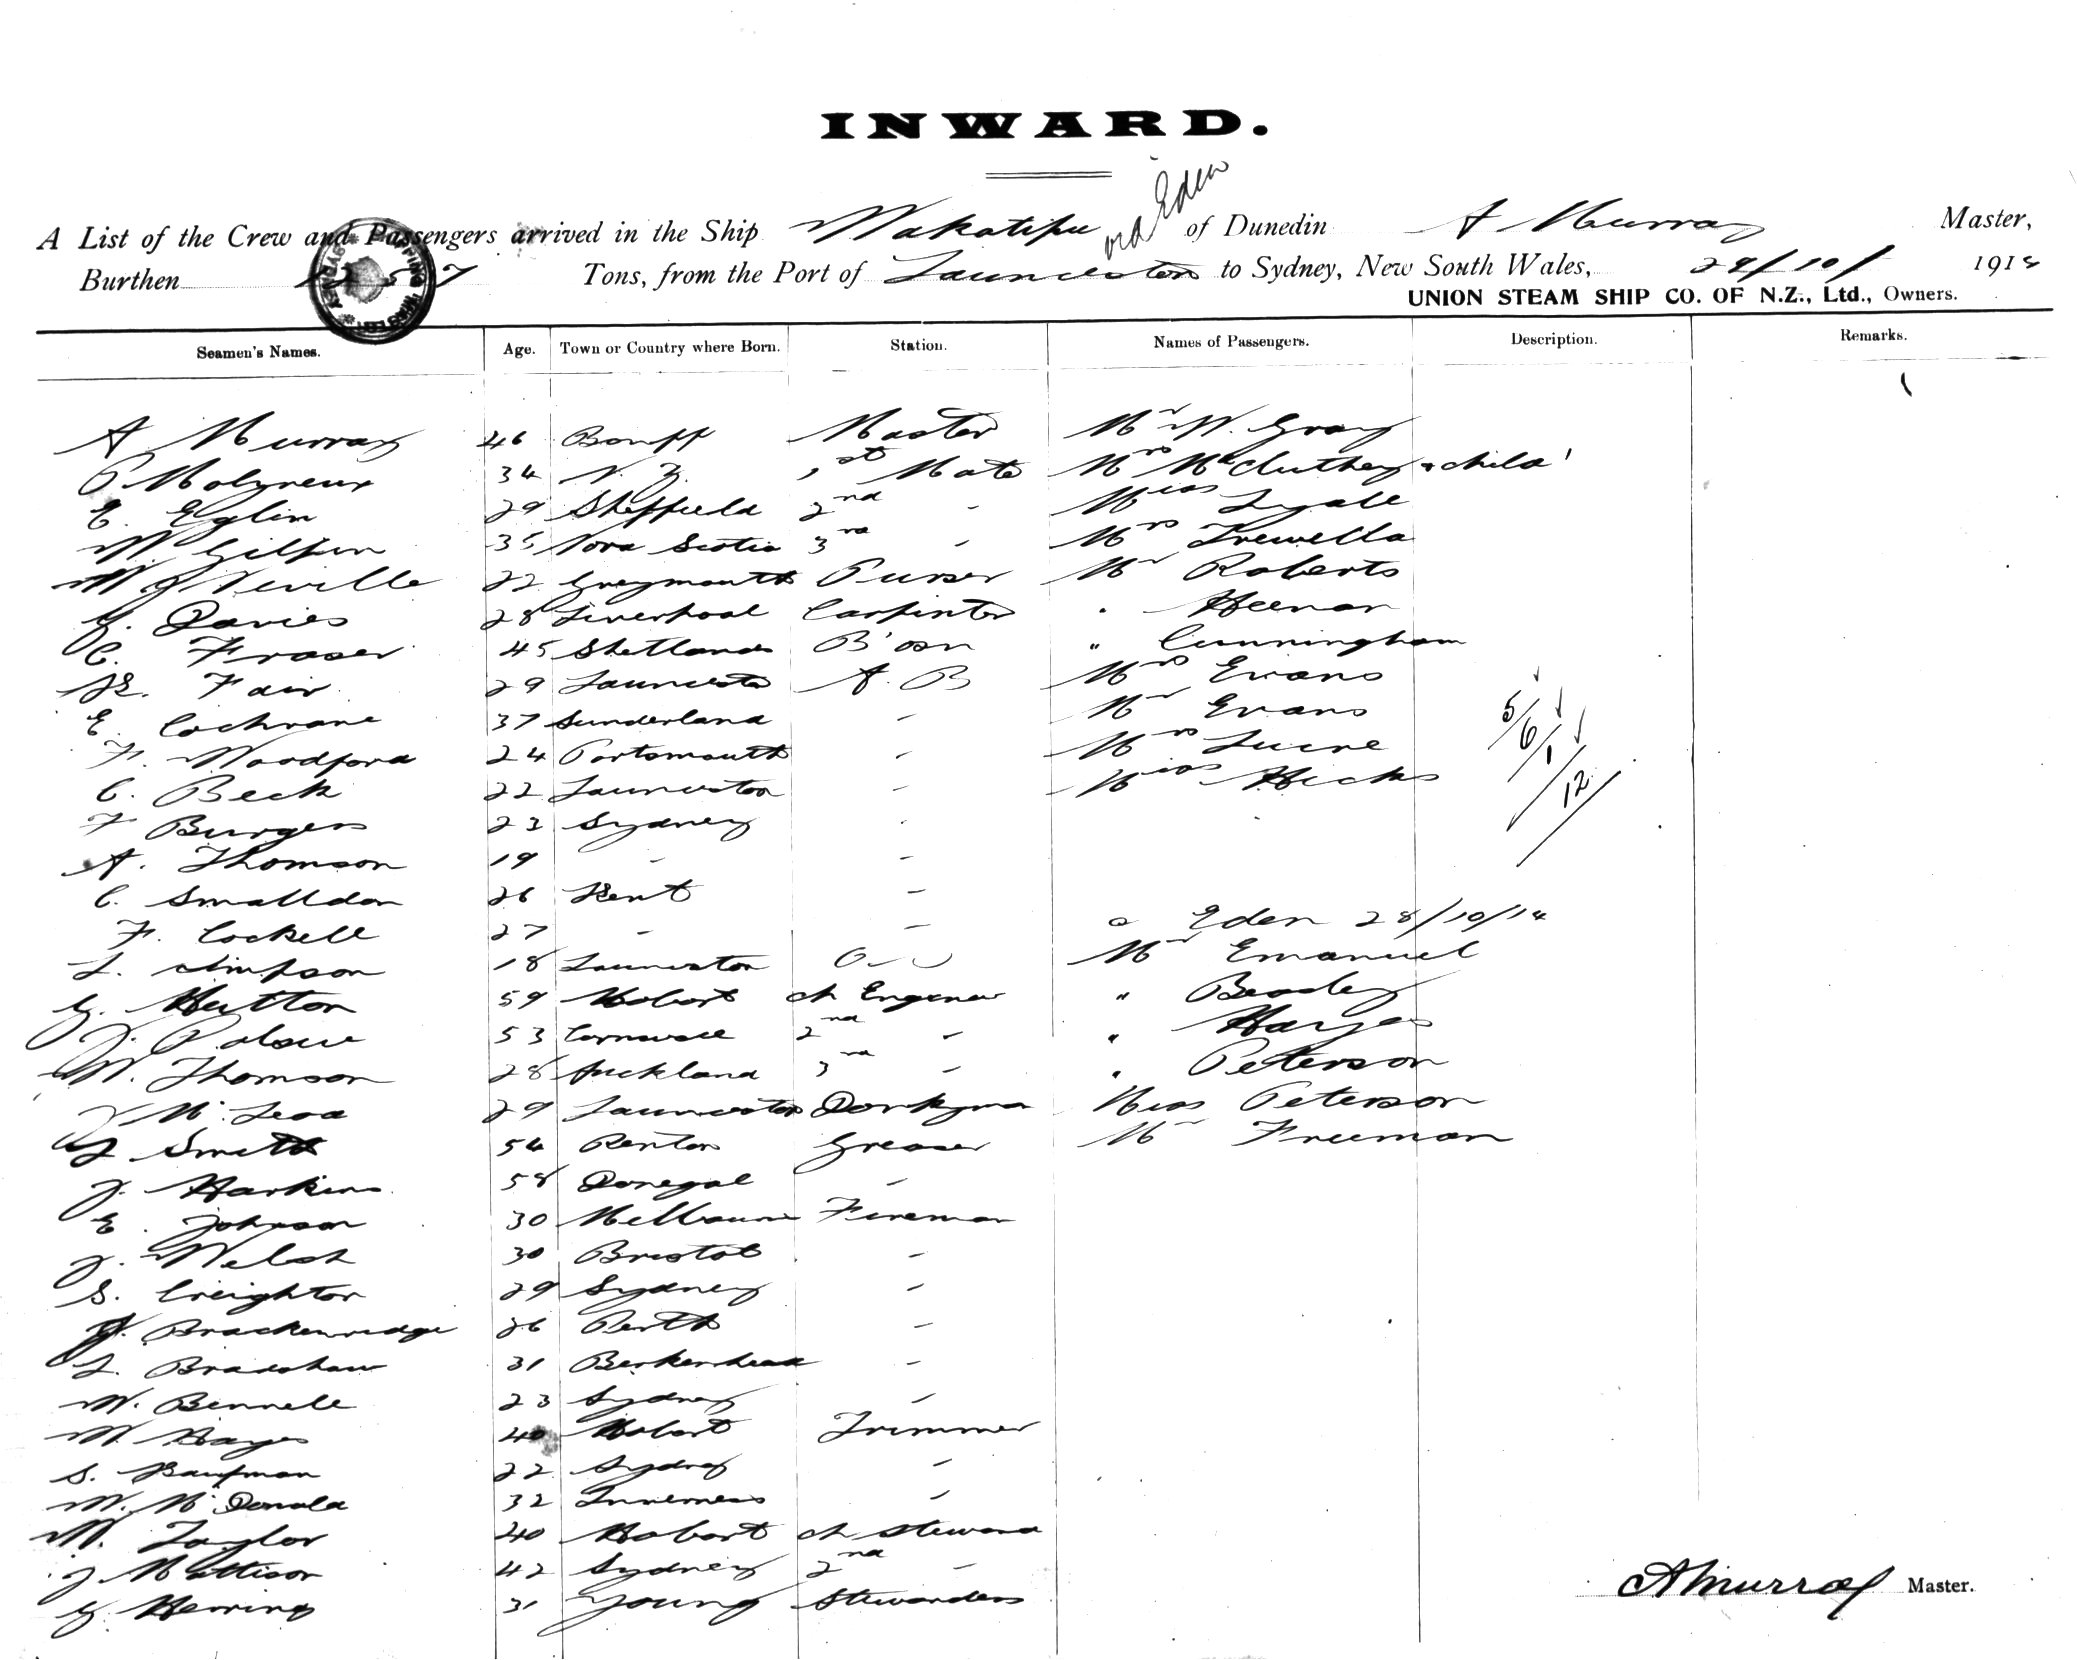 INWARD.
via Eden
A List of the Crew and Passengers arrived in the Ship Wakatipu of Dunedin A Murray Master,
Burthen Tons, from the Port of Launceston to Sydney, New South Wales, 29/10/ 1914
UNION STEAM SHIP CO. OF N.Z., Ltd., Owners.
Seamen's Names. Age. Town or Country where Born. Station. Names of Passengers. Description. Remarks.
A Murray 46 Banff Master Mr W. Gray
P Molyneux 34 N. Z. 1st Mate Mrs McCluthey & child 1
E. Eglin 29 Sheffield 2nd - Miss Lyall
W. Gilpin 35 Nova Scotia 3rd - Mrs Trewella
W J Neville 22 Greymouth Purser Mr Roberts
G. Davies 28 Liverpool Carpinter " Heenan
C. Fraser 45 Shetlands B'osn " Cunningham
K. Fair 29 Launceston A. B Mrs Evans
E Cochrane 37 Sunderland - Mr Evans 5/6/1
F. Woodford 24 Portsmouth - Mrs Luine
C. Beck 22 Launceston - Miss Hicks 12
F Burgess 23 Sydney -
A. Thomson 19 - -
C. Smalldon 26 Kent -
F. Cockell 27 - - a Eden 28/10/14
L. Simpson 18 Launceston O.S Mr Emanuel
G. Hutton 59 Hobart ch Engineer " Beadey
J. Polsue 53 Cornwall 2nd - " Hayes
W. Thomson 28 Auckland 3rd - " Peterson
J McLeod 29 Launceston Donkyman Miss Peterson
J Smith 54 Renton Greaser Mr Freeman
J. Harkins 58 Donegal -
E. Johnson 30 Melbourne Fireman
J. Welsh 30 Bristol -
S. Creighton 29 Sydney -
Brackenredge 26 Perth -
L. Bradshaw 31 Berkenhead -
W. Bennell 23 Sydney -
W. Hayes 40 Hobart Trimmer
S. Kaufman 22 Sydney -
W. McDonald 32 Inverness -
W. Taylor 40 Hobart ch Steward
J. Mattison 42 Sydney 2nd -
G. Herring 31 Young Stewardess
AMurray Master.